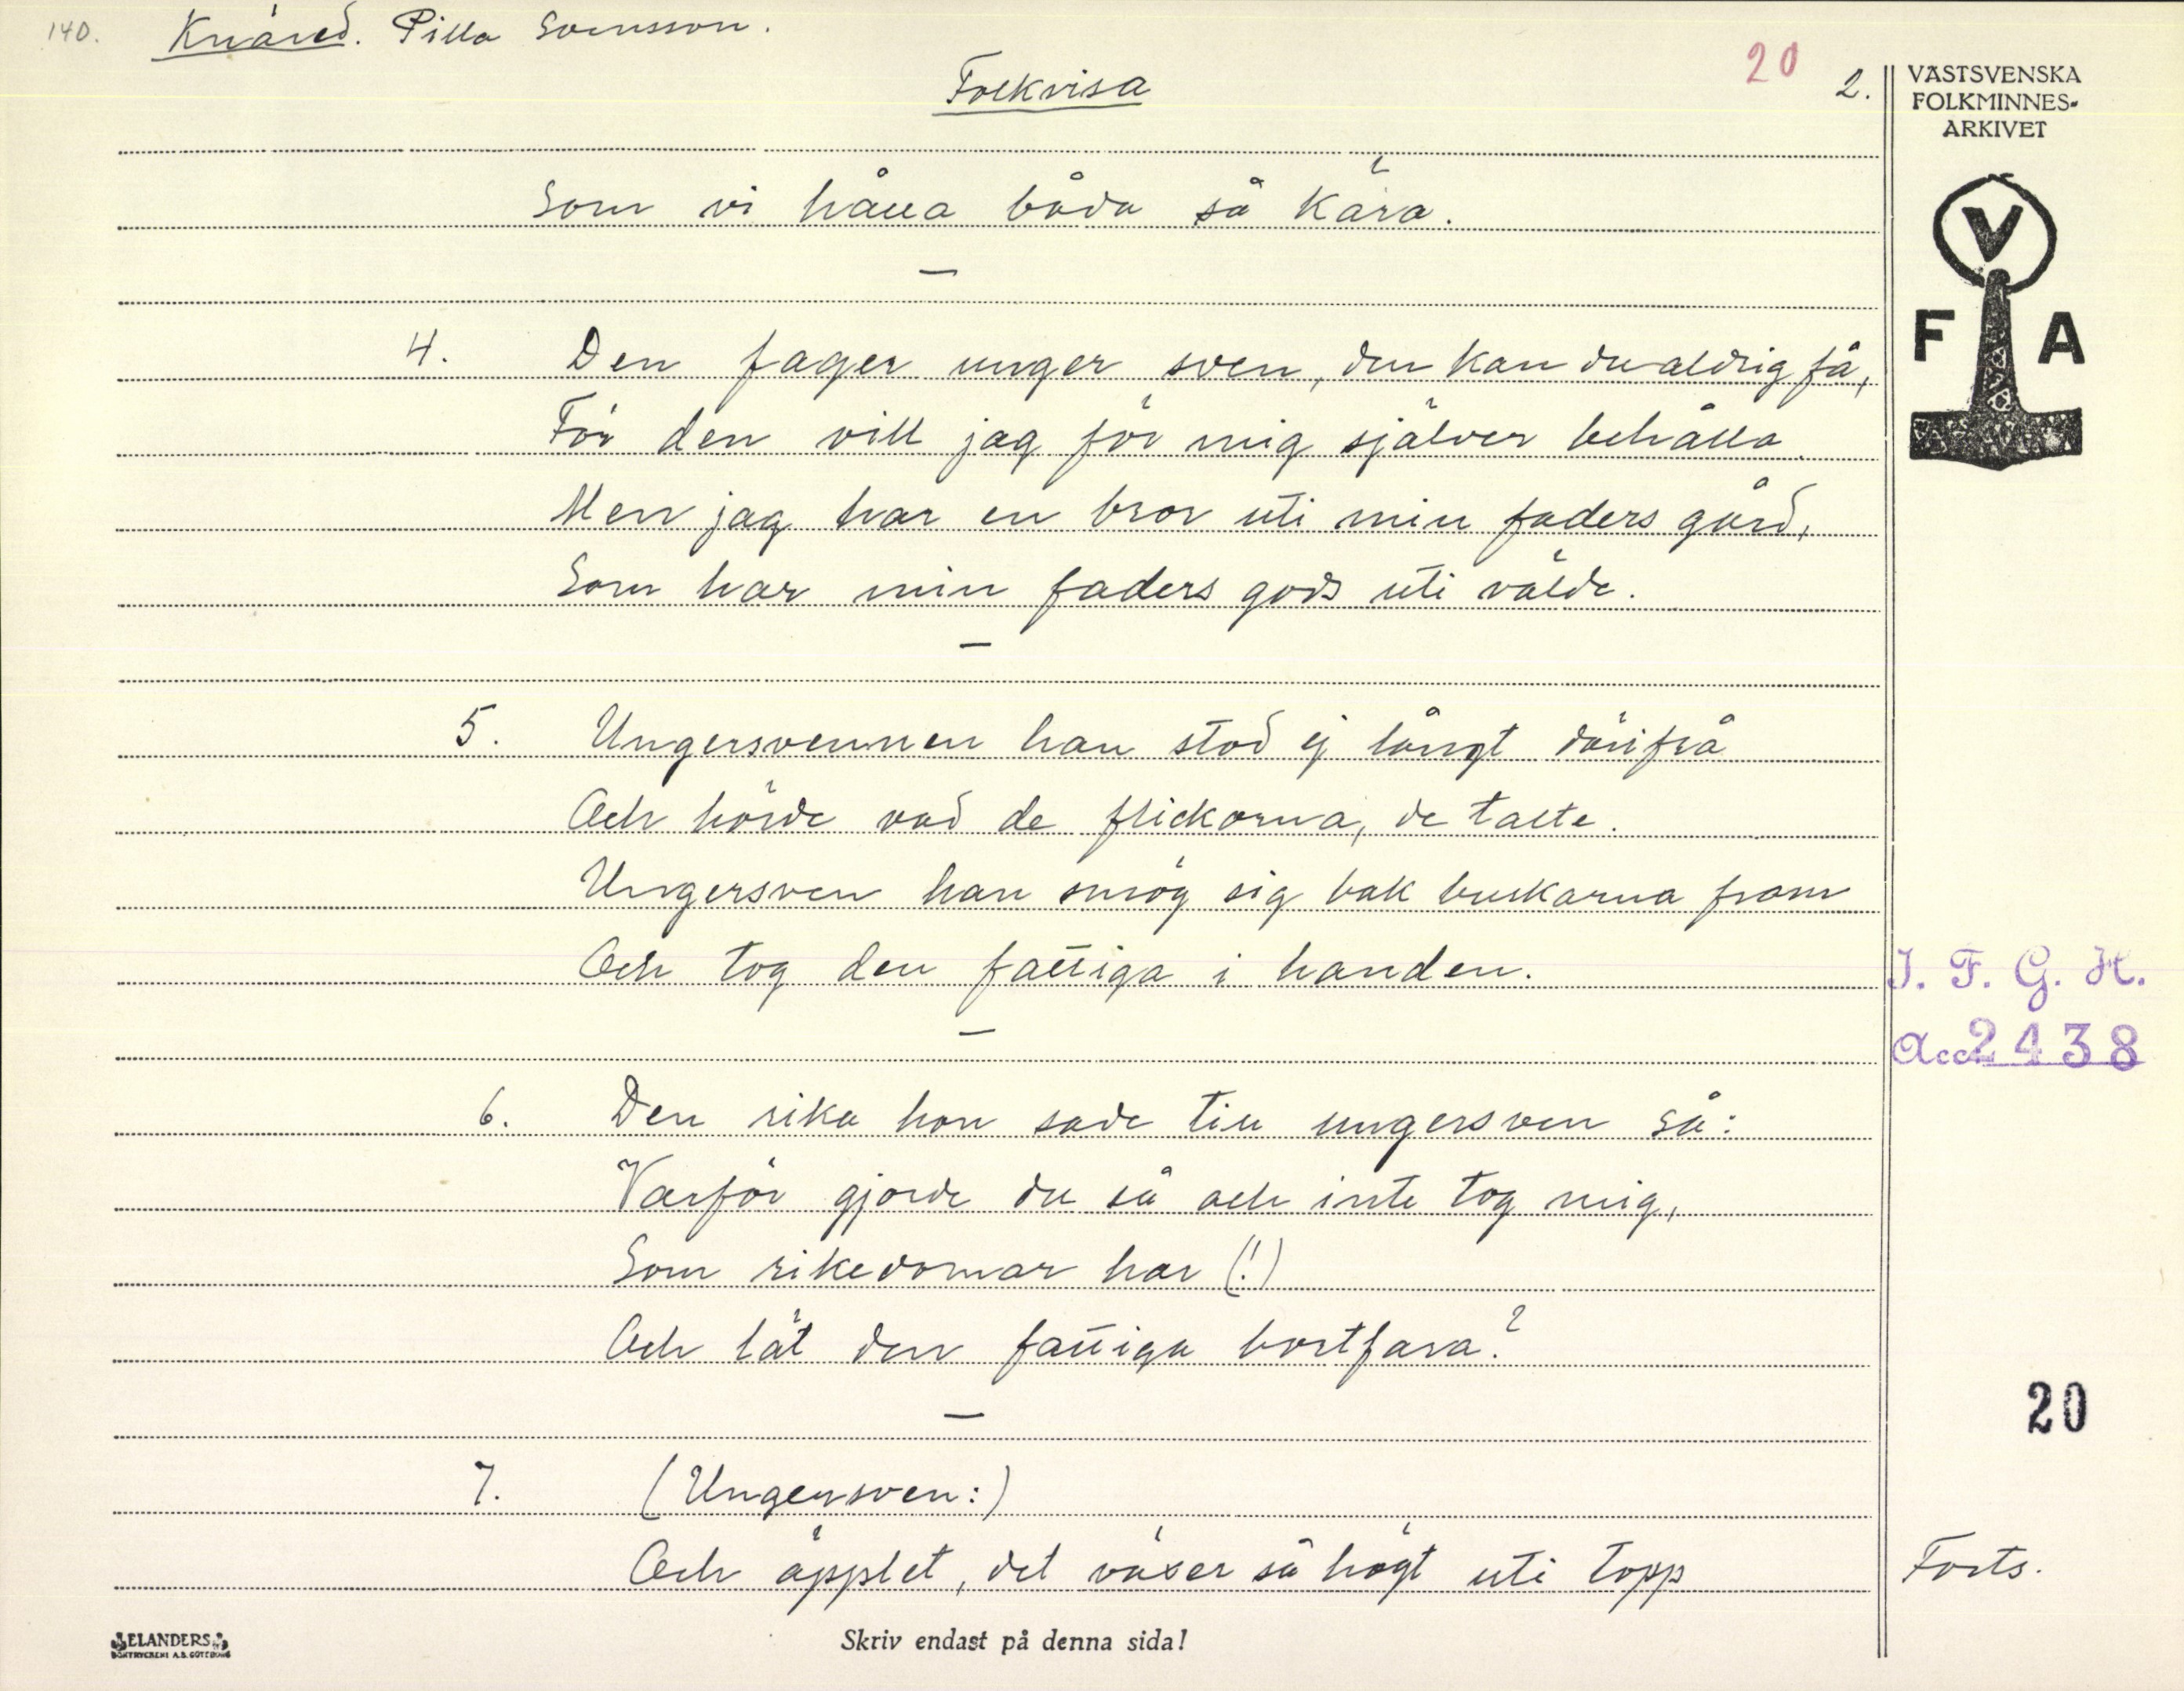 140. Knäred. Pilla Svensson.
20 2.
Folkvisa
VÄSTSVENSKA
FOLKMINNES-
ARKIVET
V
F A
Som vi hålla båda så kära.
—
4. Den fager unger sven, den kan du aldrig få,
För den vill jag för mig själver behålla.
Men jag har en bror uti min faders gård,
Som har min faders gods uti välde.
—
5. Ungersvennen han stod ej långt därifrå
Och hörde vad de flickorna, de talte.
Ungersven han smög sig bak buskarna fram
Och tog den fattiga i handen.
—
I. F. G. H.
Acc 2438
6. Den rika hon sade till ungersven så:
Varför gjorde du så och inte tog mig,
Som rikedomar har (!)
Och lät den fattiga bortfara?
—
20
7. (Ungersven:)
Och äpplet, det växer så högt uti topp
Forts.
ELANDERS
BOKTRYCKERI A.B. GÖTEBORG
Skriv endast på denna sida!